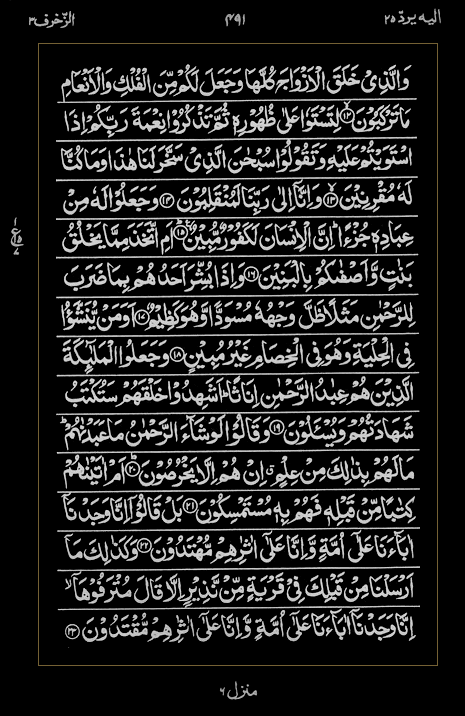 الیہ یردّ ۲۵ ۴۹۱ الزّخرف ۴۳
وَالَّذِىْ خَلَقَ الْاَزْوَاجَ كُلَّهَا وَجَعَلَ لَكُمْ مِّنَ الْفُلْكِ وَالْاَنْعَامِ
مَا تَرْكَبُوْنَ ﴿۱۲﴾ لِتَسْتَوٗا عَلٰى ظُهُوْرِهٖ ثُمَّ تَذْكُرُوْا نِعْمَةَ رَبِّكُمْ اِذَا
اسْتَوَيْتُمْ عَلَيْهِ وَتَقُوْلُوْا سُبْحٰنَ الَّذِىْ سَخَّرَ لَنَا هٰذَا وَمَا كُنَّا
لَهٗ مُقْرِنِيْنَ ﴿۱۳﴾ وَاِنَّاۤ اِلٰى رَبِّنَا لَمُنْقَلِبُوْنَ ﴿۱۴﴾ وَجَعَلُوْا لَهٗ مِنْ
عِبَادِهٖ جُزْءًا ؕ اِنَّ الْاِنْسَانَ لَكَفُوْرٌ مُّبِيْنٌ ﴿۱۵﴾ اَمِ اتَّخَذَ مِمَّا يَخْلُقُ
بَنٰتٍ وَّاَصْفٰٮكُمْ بِالْبَنِيْنَ ﴿۱۶﴾ وَاِذَا بُشِّرَ اَحَدُهُمْ بِمَا ضَرَبَ
لِلرَّحْمٰنِ مَثَلًا ظَلَّ وَجْهُهٗ مُسْوَدًّا وَّهُوَ كَظِيْمٌ ﴿۱۷﴾ اَوَمَنْ يُّنَشَّؤُا
فِى الْحِلْيَةِ وَهُوَ فِى الْخِصَامِ غَيْرُ مُبِيْنٍ ﴿۱۸﴾ وَجَعَلُوا الْمَلٰٓئِكَةَ
الَّذِيْنَ هُمْ عِبٰدُ الرَّحْمٰنِ اِنَاثًا ؕ اَشَهِدُوْا خَلْقَهُمْ ؕ سَتُكْتَبُ
شَهَادَتُهُمْ وَيُسْـَٔلُوْنَ ﴿۱۹﴾ وَقَالُوْا لَوْ شَآءَ الرَّحْمٰنُ مَا عَبَدْنٰهُمْ ؕ
مَا لَهُمْ بِذٰلِكَ مِنْ عِلْمٍ ۗ اِنْ هُمْ اِلَّا يَخْرُصُوْنَ ﴿۲۰﴾ اَمْ اٰتَيْنٰهُمْ
كِتٰبًا مِّنْ قَبْلِهٖ فَهُمْ بِهٖ مُسْتَمْسِكُوْنَ ﴿۲۱﴾ بَلْ قَالُوْۤا اِنَّا وَجَدْنَاۤ
اٰبَآءَنَا عَلٰٓى اُمَّةٍ وَّاِنَّا عَلٰٓى اٰثٰرِهِمْ مُّهْتَدُوْنَ ﴿۲۲﴾ وَكَذٰلِكَ مَاۤ
اَرْسَلْنَا مِنْ قَبْلِكَ فِىْ قَرْيَةٍ مِّنْ نَّذِيْرٍ اِلَّا قَالَ مُتْرَفُوْهَاۤ ۙ
اِنَّا وَجَدْنَاۤ اٰبَآءَنَا عَلٰٓى اُمَّةٍ وَّاِنَّا عَلٰٓى اٰثٰرِهِمْ مُّقْتَدُوْنَ ﴿۲۳﴾
منزل ۶